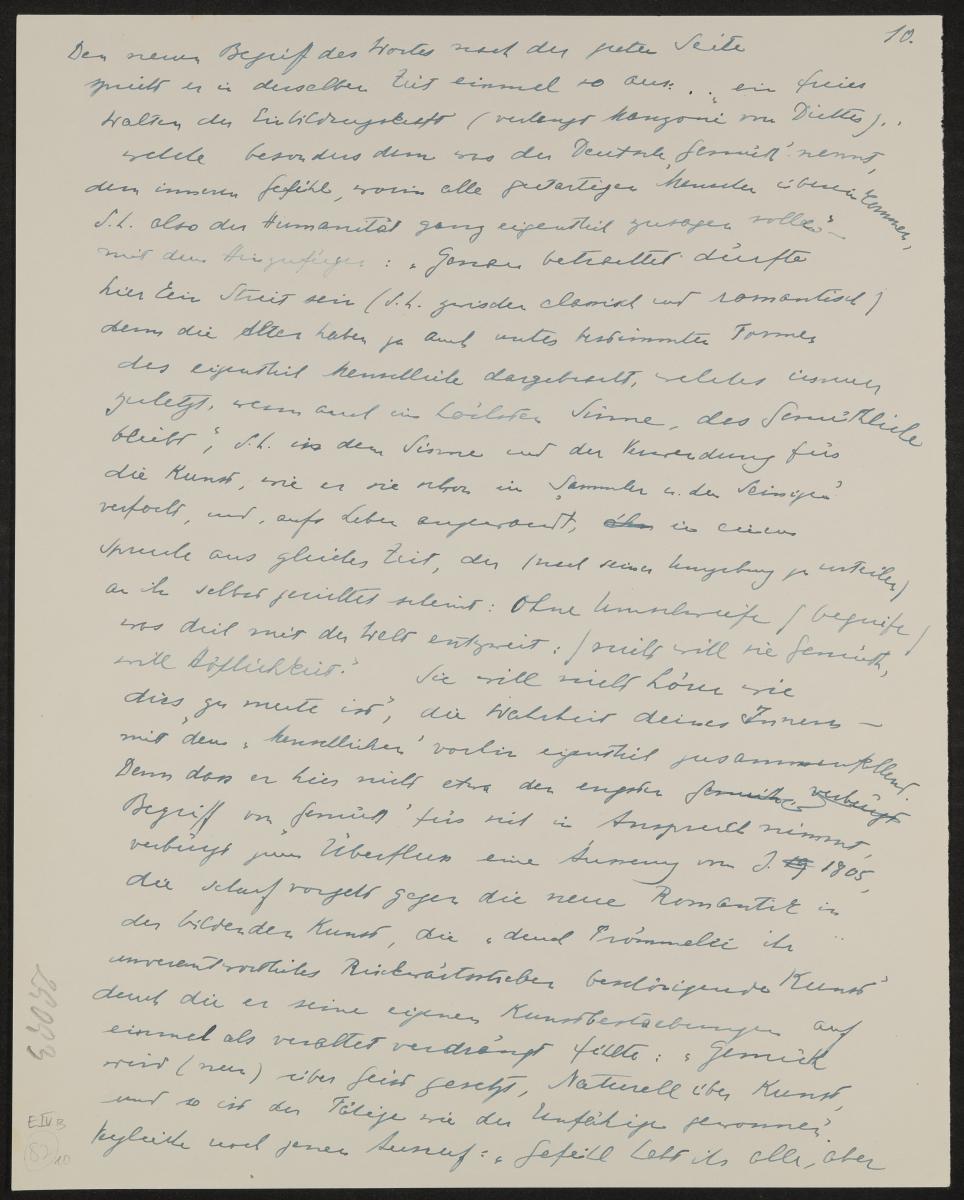 10.
Den neuen Begriff des Wortes nach der guten Seite
spricht er in derselben Zeit einmal so aus: . . „ein freies
Walten der Einbildungskraft (verlangt Manzoni vom Dichter) . .
welche besonders dem was der Deutsche Gemüth nennt,
dem inneren Gefühl, worin alle gutartigen Menschen übereinkommen,
d. h. also der Humanität ganz eigentlich zusagen sollen" —
mit dem Hinzufügen : „Genau betrachtet dürfte
hier kein Streit sein (d. h. zwischen classisch und romantisch)
denn die Alten haben ja auch unter bestimmten Formen
das eigentlich Menschliche dargebracht, welches immer
zuletzt, wenn auch im höchsten Sinne, das Gemüthliche
bleibt", d. h. in dem Sinne und der Verwendung für
die Kunst, wie er sie schon im „Sammler u. den Seinigen"
verfocht, und, aufs Leben angewandt, in einem
Spruche aus gleicher Zeit, der (nach seiner Umgebung zu urteilen)
an ihn selbst gerichtet scheint: Ohne Umschweife / begreife /
was dich mit der Welt entzweit: / nicht will sie Gemüth,
will Höflichkeit." Sie will nicht hören wie
dir „zu mute ist", die Wahrheit deines Innern —
mit dem „Menschlichen" vorhin eigentlich zusammenfallend.
Denn dass er hier nicht etwa den engsten
Begriff von Gemüth für sich in Anspruch nimmt,
verbürgt zum Überfluss eine Äusserung vom J. 1805,
die scharf vorgeht gegen die neue Romantik in
der bildenden Kunst, die „durch Frömmelei ihr
unverantwortliches Rückwärtsstreben beschönigende Kunst"
durch die er seine eigenen Kunstbestrebungen auf
einmal als veraltet verdrängt fühlte: „Gemüth
wird (nun) über Geist gesetzt, Naturell über Kunst,
und so ist der Fähige wie der Unfähige gewonnen".
Vergleiche noch jenen Ausruf: „Gefühl habt ihr alle, aber
E IV B
10